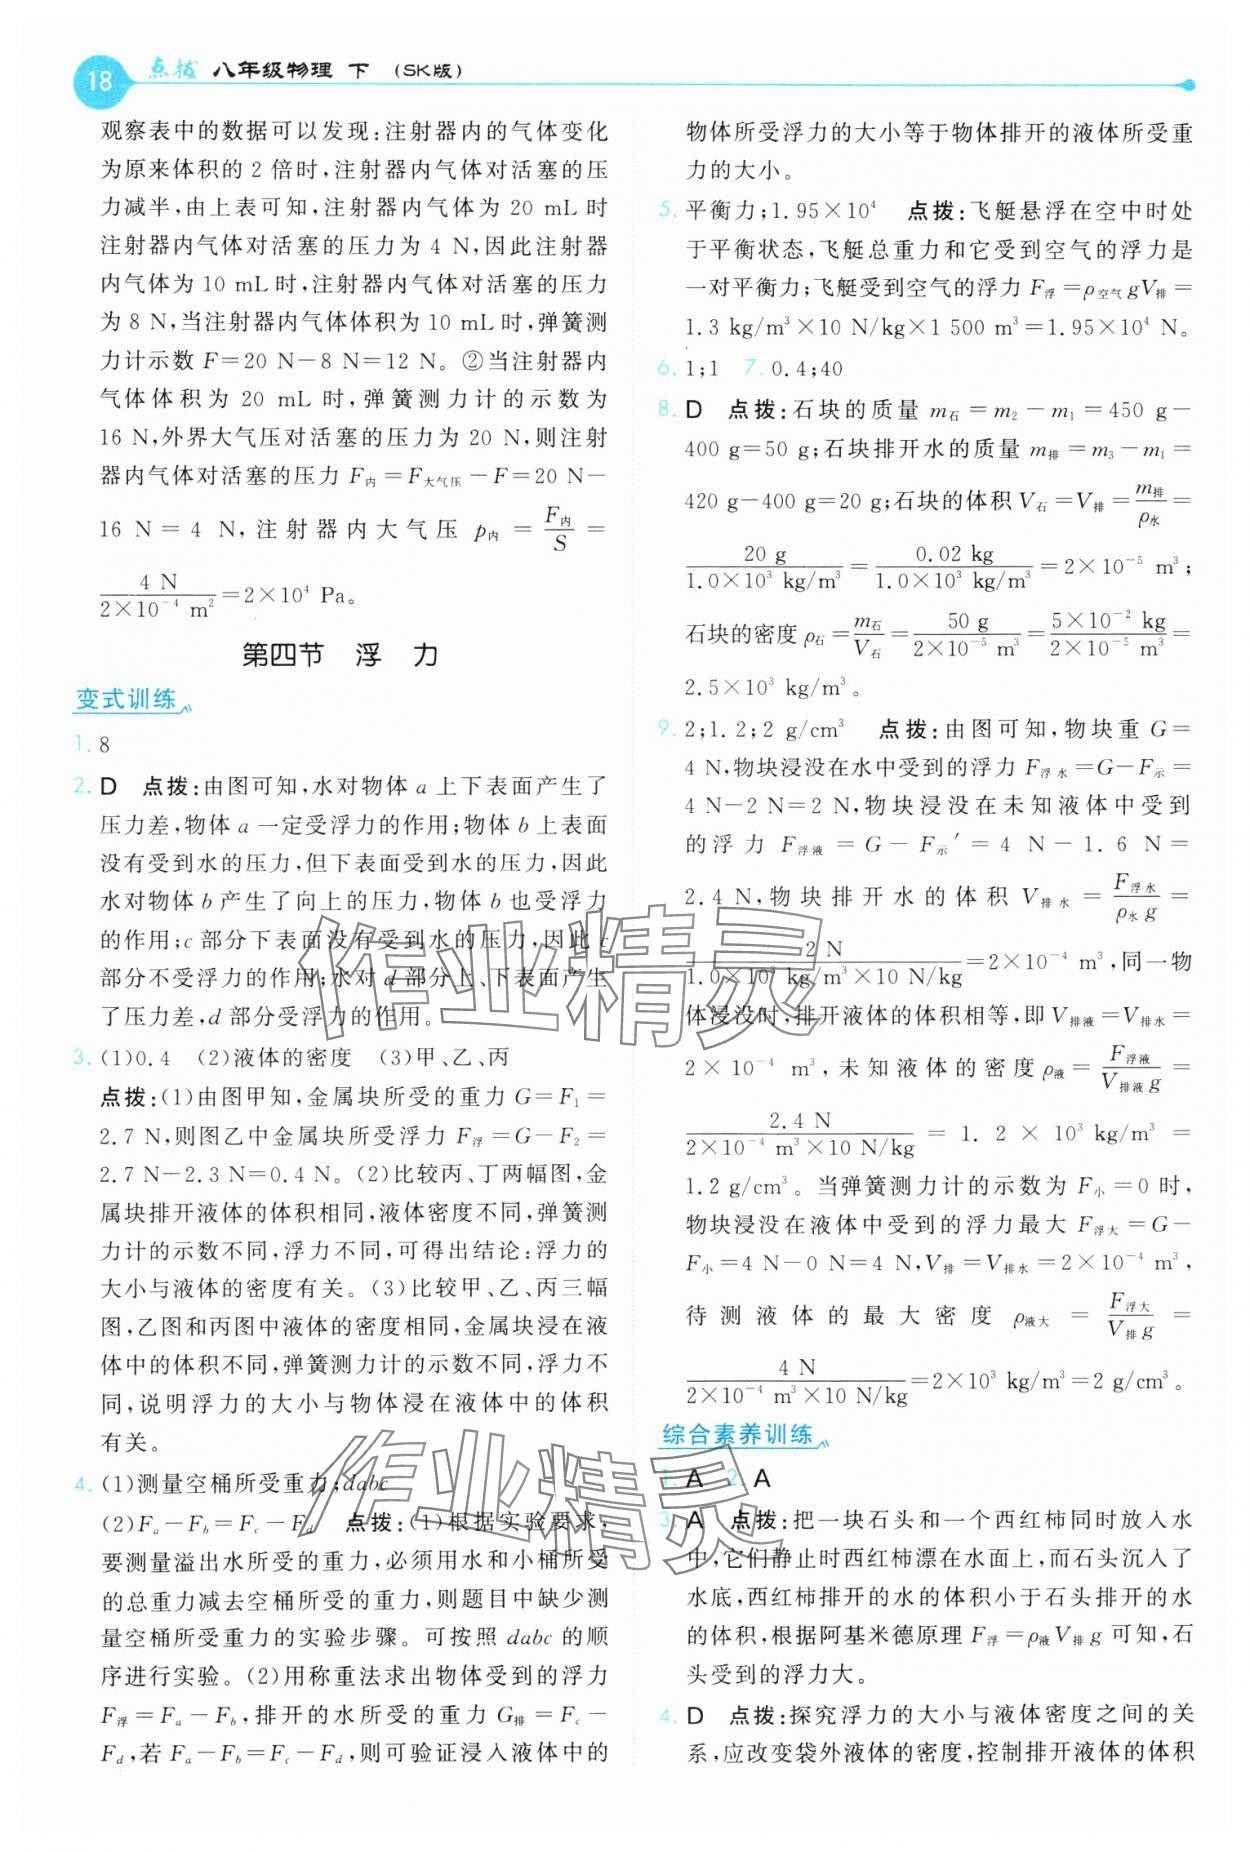 18 点拨 八年级物理 下 (SK版)
观察表中的数据可以发现:注射器内的气体变化
为原来体积的 2 倍时,注射器内气体对活塞的压
力减半,由上表可知,注射器内气体为 20 mL 时
注射器内气体对活塞的压力为 4 N,因此注射器
内气体为 10 mL 时,注射器内气体对活塞的压力
为 8 N,当注射器内气体体积为 10 mL 时,弹簧测
力计示数 F=20 N-8 N=12 N。②当注射器内
气体体积为 20 mL 时,弹簧测力计的示数为
16 N,外界大气压对活塞的压力为 20 N,则注射
器内气体对活塞的压力 F内=F大气压-F=20 N-
16 N=4 N,注射器内大气压 p内=F内/S=
4 N/(2×10⁻⁴ m²)=2×10⁴ Pa。
第四节 浮 力
变式训练
1. 8
2. D 点拨:由图可知,水对物体 a 上下表面产生了
压力差,物体 a 一定受浮力的作用;物体 b 上表面
没有受到水的压力,但下表面受到水的压力,因此
水对物体 b 产生了向上的压力,物体 b 也受浮力
的作用;c 部分下表面没有受到水的压力,因此 c
部分不受浮力的作用;水对 d 部分上、下表面产生
了压力差,d 部分受浮力的作用。
3. (1)0.4 (2)液体的密度 (3)甲、乙、丙
点拨:(1)由图甲知,金属块所受的重力 G=F₁=
2.7 N,则图乙中金属块所受浮力 F浮=G-F₂=
2.7 N-2.3 N=0.4 N。(2)比较丙、丁两幅图,金
属块排开液体的体积相同,液体密度不同,弹簧测
力计的示数不同,浮力不同,可得出结论:浮力的
大小与液体的密度有关。(3)比较甲、乙、丙三幅
图,乙图和丙图中液体的密度相同,金属块浸在液
体中的体积不同,弹簧测力计的示数不同,浮力不
同,说明浮力的大小与物体浸在液体中的体积
有关。
4. (1)测量空桶所受重力;dabc
(2)Fa-Fb=Fc-Fd 点拨:(1)根据实验要求,
要测量溢出水所受的重力,必须用水和小桶所受
的总重力减去空桶所受的重力,则题目中缺少测
量空桶所受重力的实验步骤。可按照 dabc 的顺
序进行实验。(2)用称重法求出物体受到的浮力
F浮=Fa-Fb,排开的水所受的重力 G排=Fc-
Fd,若 Fa-Fb=Fc-Fd,则可验证浸入液体中的
物体所受浮力的大小等于物体排开的液体所受重
力的大小。
5. 平衡力;1.95×10⁴ 点拨:飞艇悬浮在空中时处
于平衡状态,飞艇总重力和它受到空气的浮力是
一对平衡力;飞艇受到空气的浮力 F浮=ρ空气gV排=
1.3 kg/m³×10 N/kg×1 500 m³=1.95×10⁴ N。
6. 1;1 7. 0.4;40
8. D 点拨:石块的质量 m石=m₂-m₁=450 g-
400 g=50 g;石块排开水的质量 m排=m₃-m₁=
420 g-400 g=20 g;石块的体积 V石=V排=m排/ρ水=
20 g/(1.0×10³ kg/m³)=0.02 kg/(1.0×10³ kg/m³)=2×10⁻⁵ m³;
石块的密度 ρ石=m石/V石=50 g/(2×10⁻⁵ m³)=5×10⁻² kg/(2×10⁻⁵ m³)=
2.5×10³ kg/m³。
9. 2;1.2;2 g/cm³ 点拨:由图可知,物块重 G=
4 N,物块浸没在水中受到的浮力 F浮水=G-F示=
4 N-2 N=2 N,物块浸没在未知液体中受到
的浮力 F浮液=G-F示′=4 N-1.6 N=
2.4 N,物块排开水的体积 V排水=F浮水/(ρ水g)=
2 N/(1.0×10³ kg/m³×10 N/kg)=2×10⁻⁴ m³,同一物
体浸没时,排开液体的体积相等,即 V排液=V排水=
2×10⁻⁴ m³,未知液体的密度 ρ液=F浮液/(V排液g)=
2.4 N/(2×10⁻⁴ m³×10 N/kg)=1.2×10³ kg/m³=
1.2 g/cm³。当弹簧测力计的示数为 F小=0 时,
物块浸没在液体中受到的浮力最大 F浮大=G-
F小=4 N-0 N=4 N,V排=V排水=2×10⁻⁴ m³,
待测液体的最大密度 ρ液大=F浮大/(V排g)=
4 N/(2×10⁻⁴ m³×10 N/kg)=2×10³ kg/m³=2 g/cm³。
综合素养训练
1. A 2. A
3. A 点拨:把一块石头和一个西红柿同时放入水
中,它们静止时西红柿漂在水面上,而石头沉入了
水底,西红柿排开的水的体积小于石头排开的水
的体积,根据阿基米德原理 F浮=ρ液V排g 可知,石
头受到的浮力大。
4. D 点拨:探究浮力的大小与液体密度之间的关
系,应改变袋外液体的密度,控制排开液体的体积
作业精灵
作业精灵